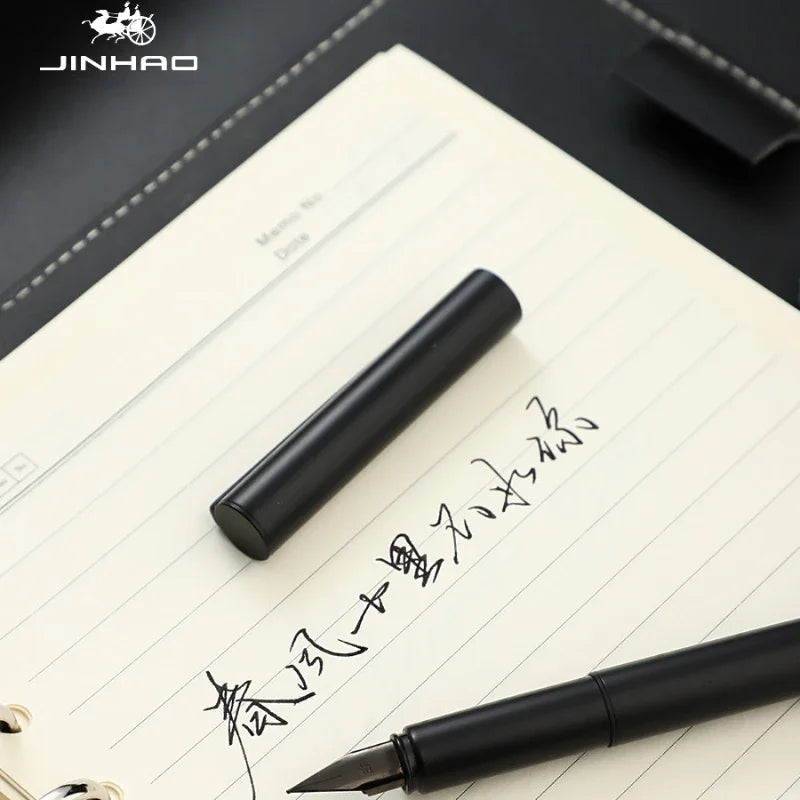 JINHAO
Memo No
Date
春风十里不如你